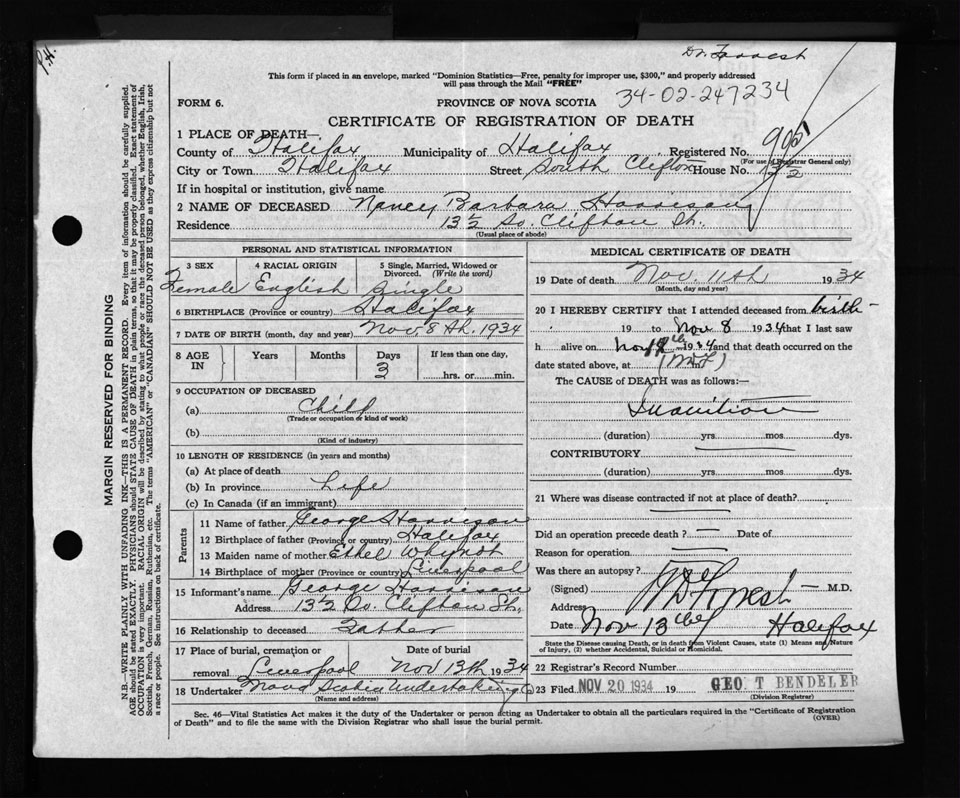 P.H.
Dr. Forrest
This form if placed in an envelope, marked "Dominion Statistics—Free, penalty for improper use, $300," and properly addressed
will pass through the Mail "FREE"
34-02-247234
FORM 6.
PROVINCE OF NOVA SCOTIA
CERTIFICATE OF REGISTRATION OF DEATH
1 PLACE OF DEATH—
County of Halifax Municipality of Halifax Registered No.
(For use of Registrar General only)
City or Town Halifax Street South Clifton House No. 13½
If in hospital or institution, give name
2 NAME OF DECEASED Nancy Barbara Harrison
Residence 13½ So. Clifton St.
(Usual place of abode)
PERSONAL AND STATISTICAL INFORMATION
3 SEX 4 RACIAL ORIGIN 5 Single, Married, Widowed or Divorced. (Write the word)
Female English Single
6 BIRTHPLACE (Province or country) Halifax
7 DATE OF BIRTH (month, day and year) Nov. 8th. 1934
8 AGE IN Years Months Days If less than one day,
3 hrs. or min.
9 OCCUPATION OF DECEASED
(a) Child
(Trade or occupation or kind of work)
(b)
(Kind of industry)
10 LENGTH OF RESIDENCE (in years and months)
(a) At place of death
(b) In province Life
(c) In Canada (if an immigrant)
Parents
11 Name of father George Harrison
12 Birthplace of father (Province or country) Halifax
13 Maiden name of mother Ethel Whynot
14 Birthplace of mother (Province or country) Liverpool
15 Informant's name George Harrison
Address 13½ So. Clifton St.
16 Relationship to deceased Father
17 Place of burial, cremation or removal Date of burial
Liverpool Nov 13th 1934
18 Undertaker Nova Scotia Undertaking Co
(Name and address)
MEDICAL CERTIFICATE OF DEATH
19 Date of death Nov. 11th 1934
(Month, day and year)
20 I HEREBY CERTIFY that I attended deceased from birth
19 to Nov 8 1934 that I last saw
h alive on Nov 1934 and that death occurred on the
date stated above, at m.
The CAUSE of DEATH was as follows:—
Inanition
(duration) yrs. mos. dys.
CONTRIBUTORY
(duration) yrs. mos. dys.
21 Where was disease contracted if not at place of death?
Did an operation precede death? — Date of
Reason for operation
Was there an autopsy?
(Signed) Forrest M.D.
Address
Date Nov 13 Halifax
State the Disease causing Death, or in death from Violent Causes, state (1) Means and Nature
of Injury, (2) whether Accidental, Suicidal or Homicidal.
22 Registrar's Record Number
23 Filed NOV 20 1934 19 GEO T BENDELER
(Division Registrar)
Sec. 46—Vital Statistics Act makes it the duty of the Undertaker or person acting as Undertaker to obtain all the particulars required in the "Certificate of Registration
of Death" and to file the same with the Division Registrar who shall issue the burial permit.
(OVER)
MARGIN RESERVED FOR BINDING
N.B.—WRITE PLAINLY WITH UNFADING INK—THIS IS A PERMANENT RECORD. Every item of information should be carefully supplied.
AGE should be stated EXACTLY. PHYSICIANS should STATE CAUSE OF DEATH in plain terms, so that it may be properly classified. Exact statement of
OCCUPATION is very important. RACIAL ORIGIN will be described by stating to what people or race the deceased person belonged, whether English, Irish,
Scottish, French, German, Russian, Ruthenian, etc. The terms "AMERICAN" or "CANADIAN" SHOULD NOT BE USED as they express citizenship but not
a race or people. See instructions on back of certificate.